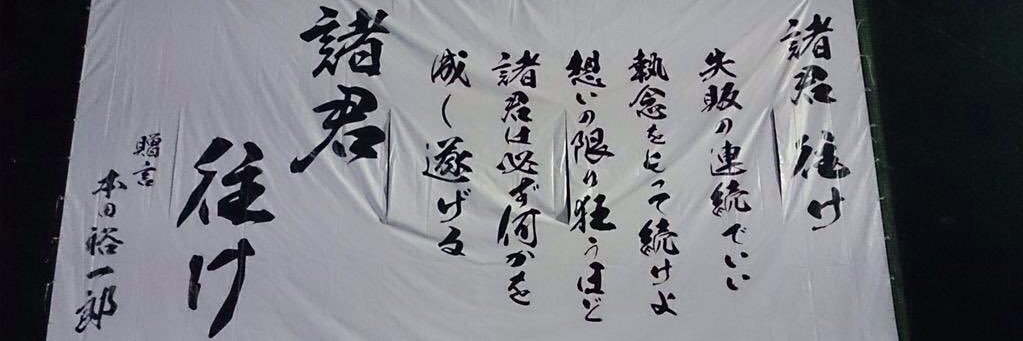 諸君 往け
失敗の連続でいい
執念をもって続けよ
想いの限り狂うほど
諸君は必ず何かを
成し遂げる
諸君
往け
贈言
本田裕一郎